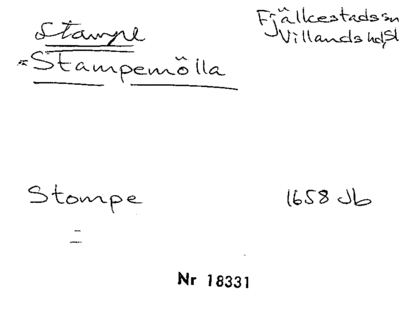 Stampe
*Stampemölla
Fjälkestads sn
Villands hd, Sk
Stompe
1658 Jb
=
Nr 18331